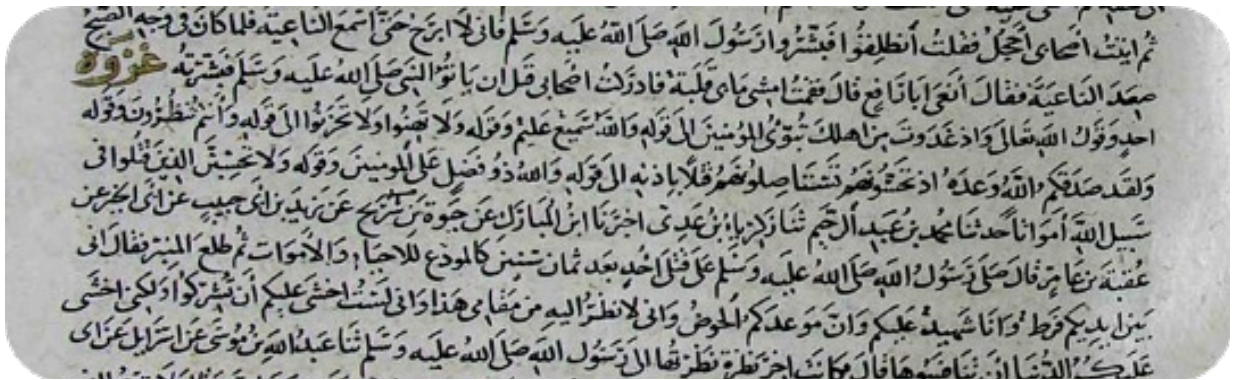 ثم اتيت اصحابى احجل فقلت انطلقوا فبشروا رسول الله صلى الله عليه وسلم فانى لا ابرح حتى اسمع الناعية فلما كان فى وجه الصبح
صعد الناعية فقال انعى ابا رافع قال فقمت امشى مابى قلبة فادركت اصحابى قبل ان ياتوا النبى صلى الله عليه وسلم فبشرته غزوة
احد وقول الله تعالى واذ غدوت من اهلك تبوئ المؤمنين الى قوله والله سميع عليم وقوله ولا تهنوا ولا تحزنوا الى قوله وانتم تنظرون وقوله
ولقد صدقكم الله وعده اذ تحسونهم تستاصلونهم قتلا باذنه الى قوله والله ذو فضل على المومنين وقوله ولا تحسبن الذين قتلوا فى
سبيل الله امواتا حدثنا محمد بن عبد الرحيم ثنا زكرياء بن عدى اخبرنا ابن المبارك عن حيوة بن شريح عن يزيد بن ابى حبيب عن ابى الخير عن
عقبة بن عامر قال صلى رسول الله صلى الله عليه وسلم على قتلى احد بعد ثمان سنين كالمودع للاحياء والاموات ثم طلع المنبر فقال انى
بين ايديكم فرط وانا شهيد عليكم وان موعدكم الحوض وانى لانظر اليه من مقامى هذا وانى لست اخشى عليكم ان تشركوا ولكنى اخشى
عليكم الدنيا ان تنافسوها قال فكانت اخر نظرة نظرتها الى رسول الله صلى الله عليه وسلم ثنا عبيد الله بن موسى عن اسرايل عن ابى